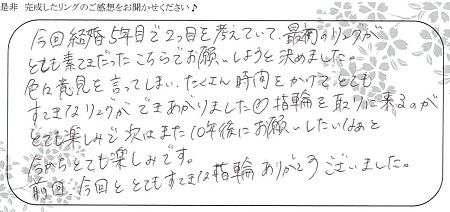 是非 完成したリングのご感想をお聞かせください♪
今回結婚5年目で2つ目を考えていて、最初のリングが
とても素てきだったこちらでお願いしようと決めました。
色々意見を言ってしまい、たくさん時間をかけて、とても
すてきなリングができあがりました♡指輪を取りに来るのが
とても楽しみで次はまた10年後にお願いしたいなぁと
今からとても楽しみです。
前回、今回ととてもすてきな指輪ありがとうございました。